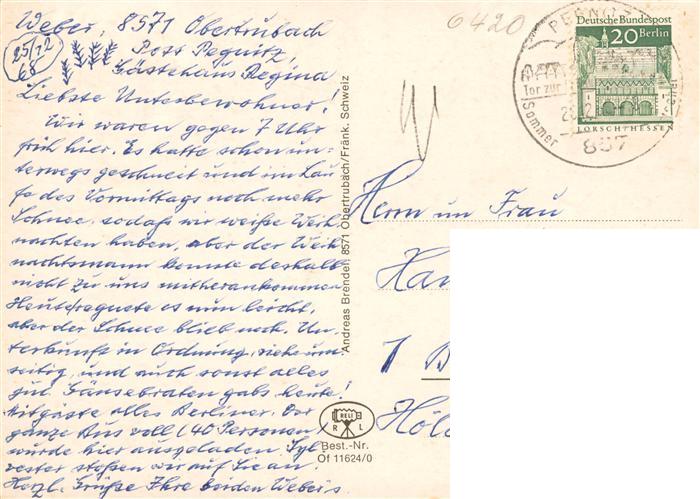 Weber, 8571 Obertrubach
Post Pegnitz,
Gästehaus Regina
25/12
68
Liebste Untesbewohner!
Wir waren gegen 7 Uhr
früh hier. Es hatte schon un-
terwegs geschneit und im Lau-
fe des Vormittags noch mehr
Schnee, sodaß wir weiße Weih-
nachten haben, aber der Weih
nachtsmann konnte deshalb
nicht zu uns mitherankommen
Heute regnete es nun leicht,
aber der Schnee blieb noch. Un-
terkunft in Ordnung, siehe um-
seitig, und auch sonst alles
gut. Gänsebraten gabs heute!
Mitgäste alles Berliner. Der
ganze Bus voll (40 Personen)
wurde hier ausgeladen. Syl-
vester stoßen wir auf Sie an.
Herzl. Grüße Ihre beiden Webers
Andreas Brendel, 8571 Obertrubach/Fränk. Schweiz
RELI
R L
Best.-Nr.
Of 11624/0
6420
PEGNITZ
Tor zur
Sommer
857
Deutsche Bundespost
20 Berlin
LORSCH/HESSEN
Herrn un Frau
Han
1 B
Höl